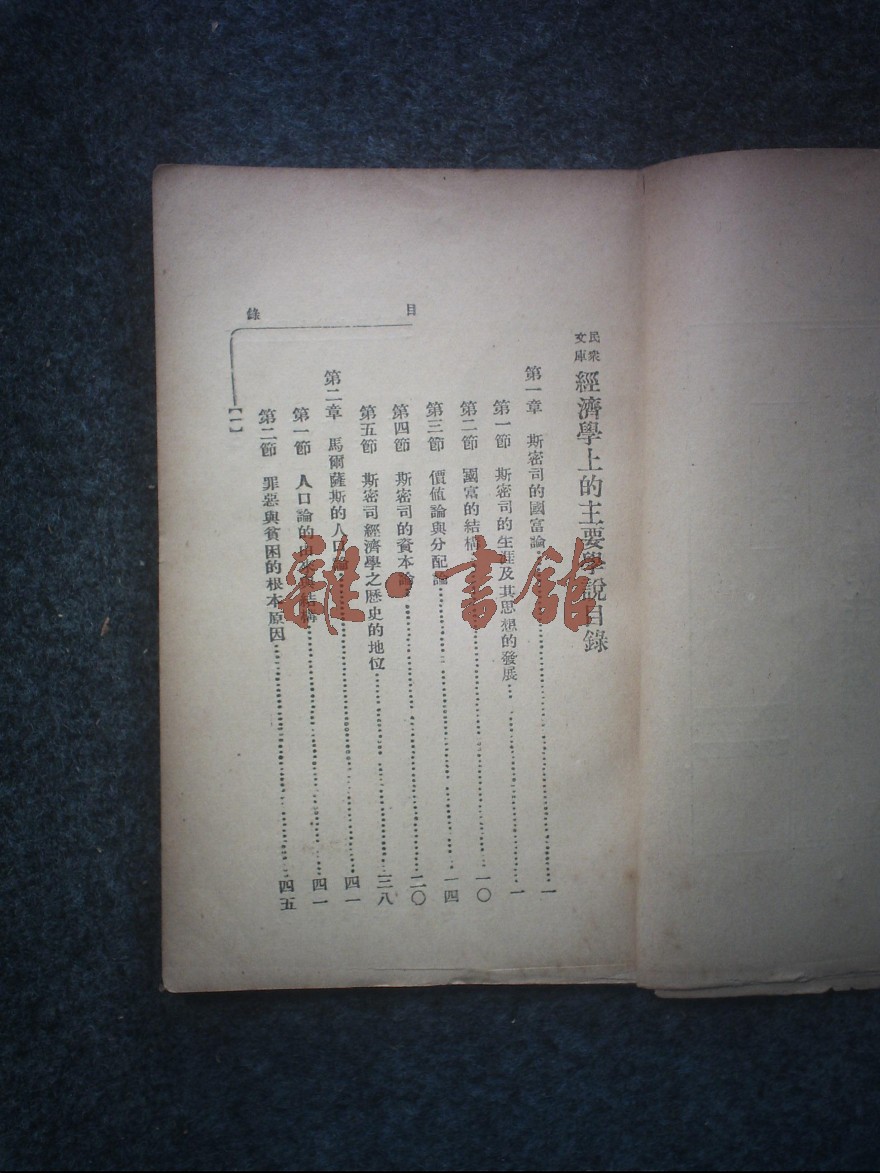 民衆文庫 經濟學上的主要學說目錄
第一章 斯密司的國富論 一
第一節 斯密司的生涯及其思想的發展 一
第二節 國富的結構 一〇
第三節 價値論與分配論 一四
第四節 斯密司的資本論 二〇
第五節 斯密司經濟學之歷史的地位 三八
第二章 馬爾薩斯的人口論 四一
第一節 人口論的 結構 四一
第二節 罪惡與貧困的根本原因 四五
目錄
【一】
雜·書館